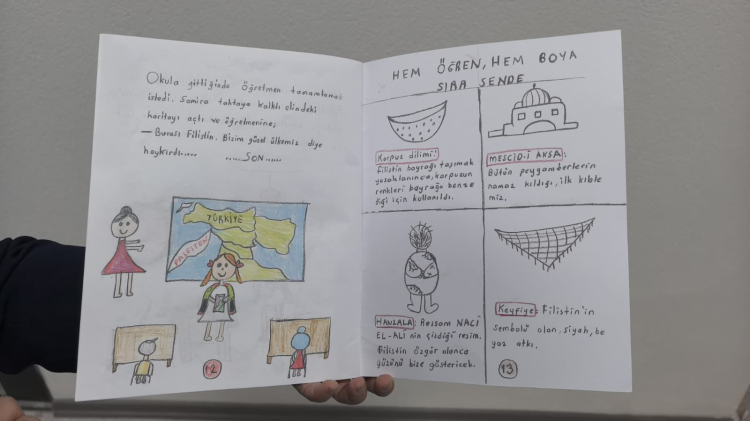 Okula gittiğinde öğretmen tanımlamak
istedi. Samira tahtaya kalktı elindeki
haritayı açtı ve öğretmenine;
— Burası Filistin. Bizim güzel ülkemiz diye
haykırdı.....
......SON......
TÜRKİYE
FİLİSTİN
12
HEM ÖĞREN, HEM BOYA
SIRA SENDE
Karpuz dilimi:
Filistin bayrağı taşımak
yasaklanınca, karpuzun
renkleri bayrağa benze
diği için kullanıldı.
MESCİD-İ AKSA:
Bütün peygamberlerin
namaz kıldığı, ilk kıble
miz.
HANZALA: Ressam NACİ
EL-ALİ nin çizdiği resim.
Filistin özgür olunca
yüzünü bize gösterecek.
Keyfiye: Filistin'in
sembolü olan, siyah, be
yaz atkı.
13